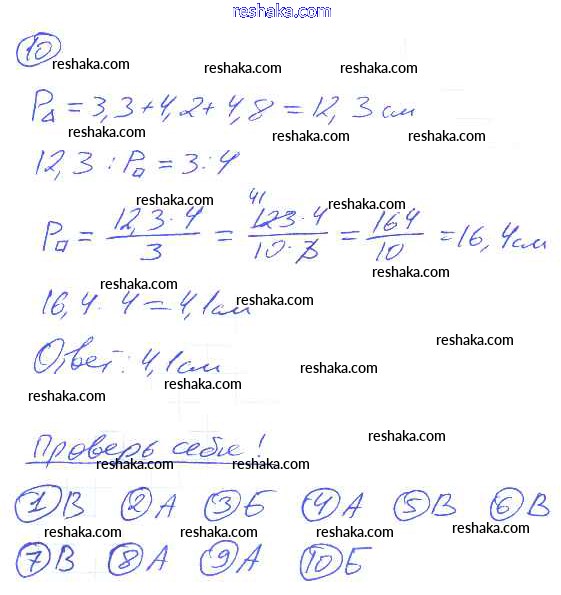 reshaka.com
10
reshaka.com reshaka.com reshaka.com
P△ = 3,3+4,2+4,8 = 12,3 см
reshaka.com reshaka.com reshaka.com
12,3 : P□ = 3:4
reshaka.com reshaka.com
P□ = 12,3·4/3 = 41 123·4/10·3 = 164/10 = 16,4 см
reshaka.com reshaka.com
16,4 : 4 = 4,1 см
reshaka.com
Ответ: 4,1 см
reshaka.com reshaka.com reshaka.com
Проверь себя!
reshaka.com reshaka.com reshaka.com
1 В 2 А 3 Б 4 А 5 В 6 В
reshaka.com reshaka.com reshaka.com reshaka.com
7 В 8 А 9 А 10 Б